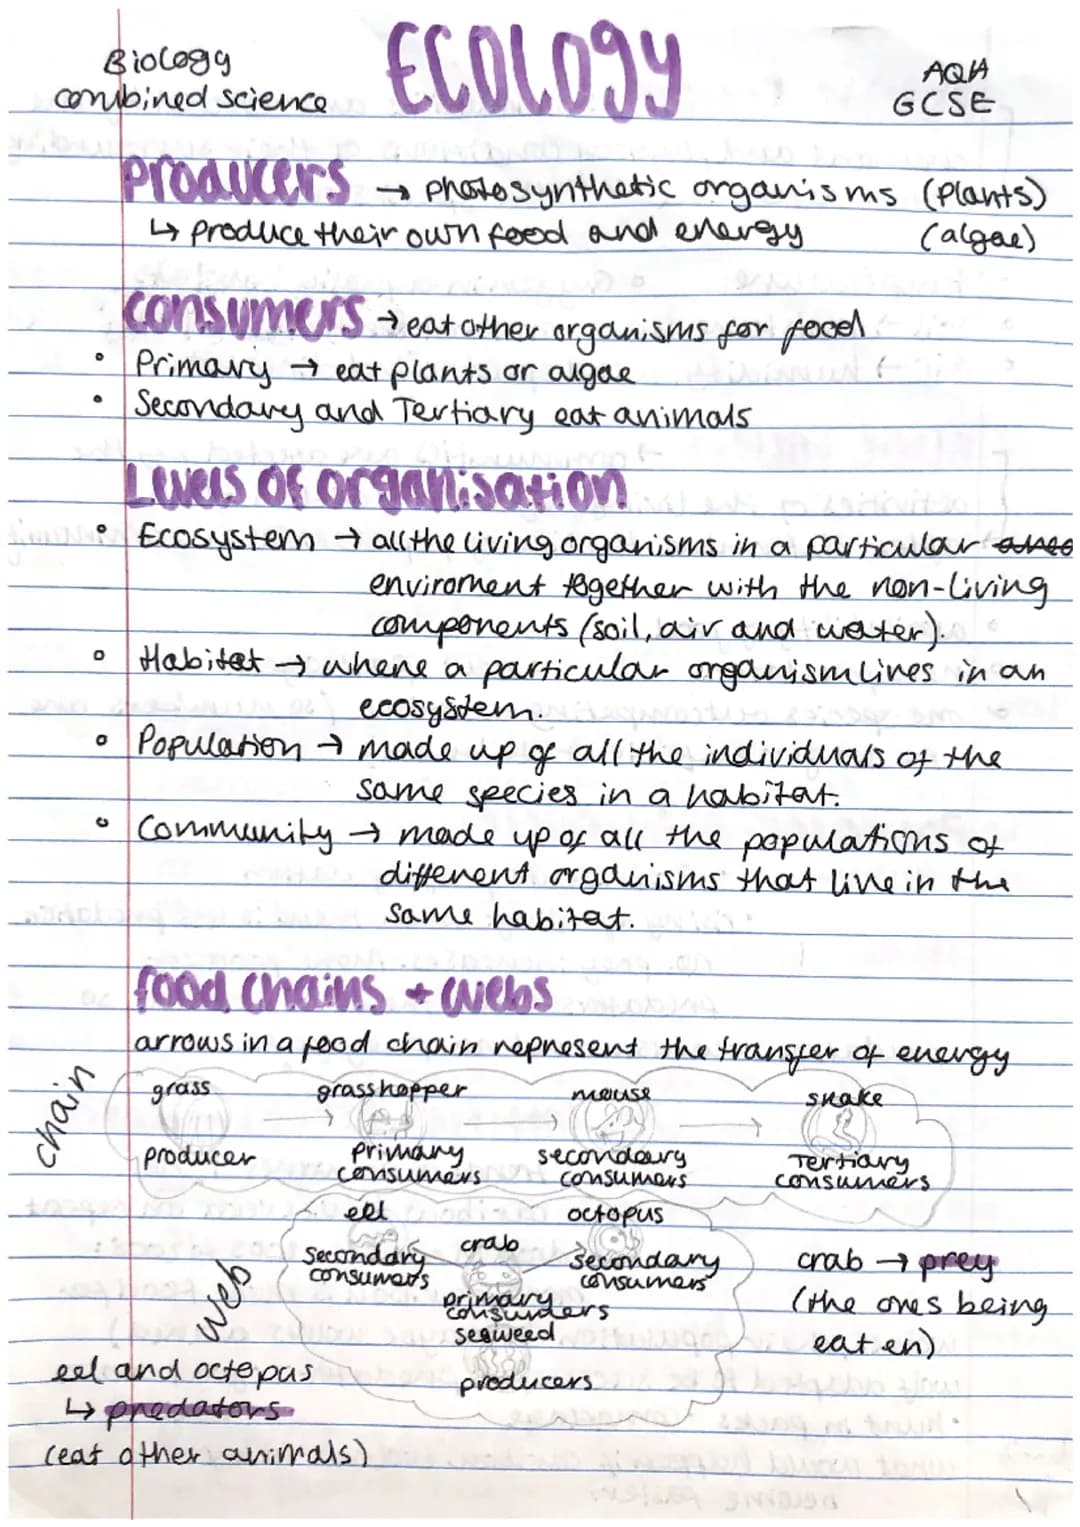 Biology
combined science
ECOLOGY
AQA
GCSE
Producers → photosynthetic organisms (Plants)
↳ produce their own food and energy (algae)
consumers → eat other organisms for food
• Primary → eat plants or algae
• Secondary and Tertiary eat animals
Levels of organisation
• Ecosystem → all the living organisms in a particular
enviroment together with the non-living
components (soil, air and water).
• Habitat → where a particular organism lives in an
ecosystem.
• Population → made up of all the individuals of the
same species in a habitat.
• Community → made up of all the populations of
different organisms that live in the
same habitat.
food chains + webs
arrows in a food chain represent the transfer of energy
chain
grass → grasshopper → mouse → snake
producer primary secondary Tertiary
consumers consumers consumers
web
eel octopus
crab
secondary secondary
consumers consumers
primary
consumers
seaweed
producers
crab → prey
(the ones being
eaten)
eel and octopus
↳ predators
(eat other animals)